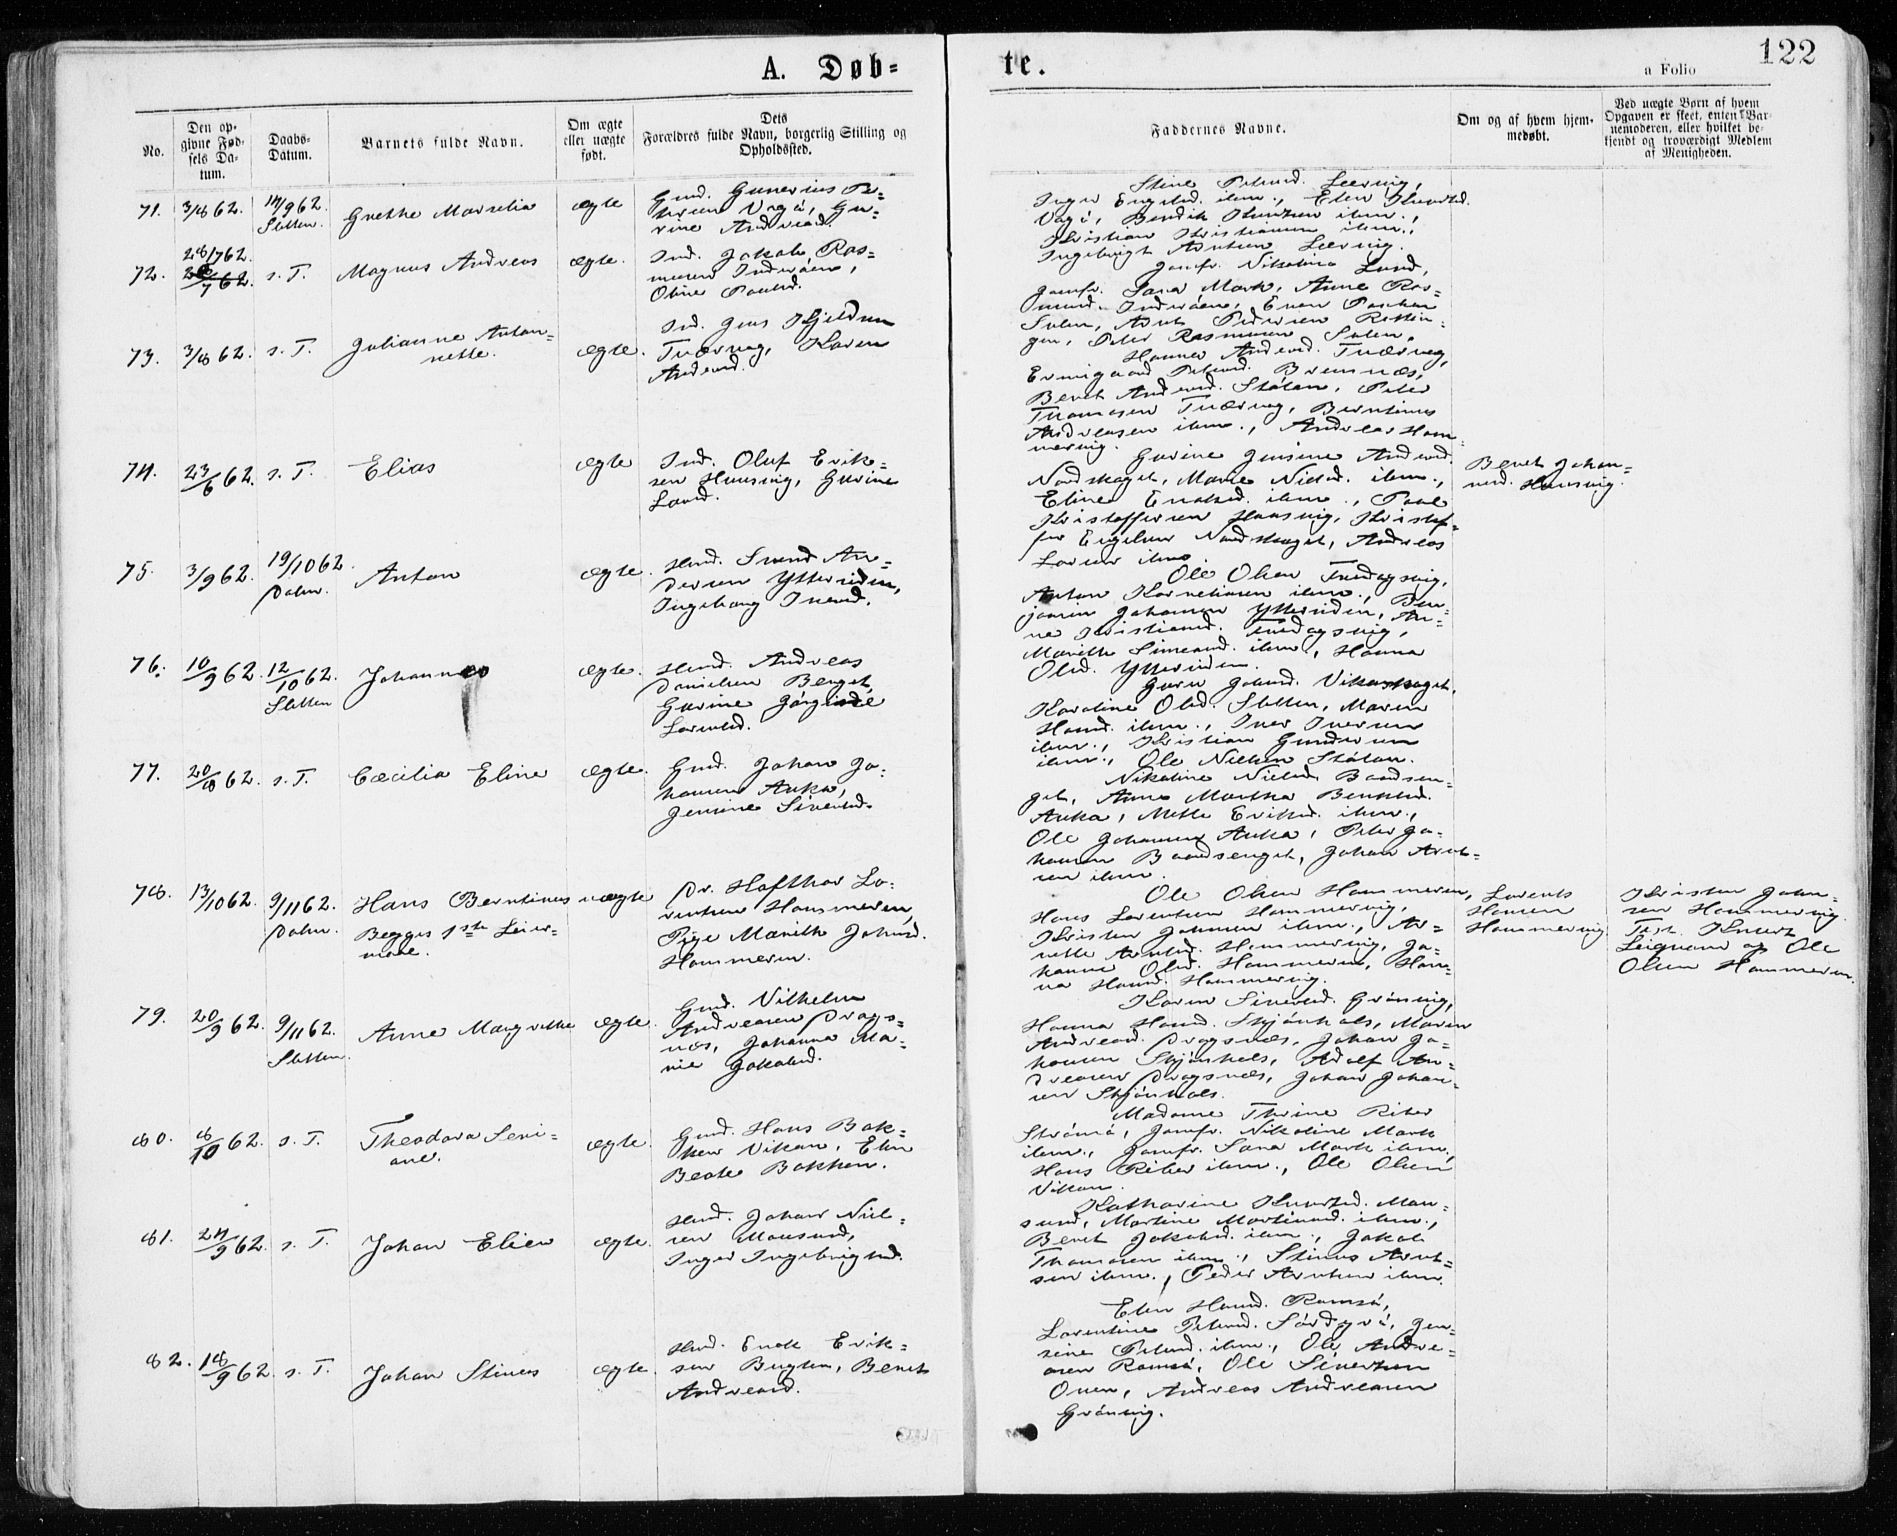 122
A. Døb-
te.
a Folio
No.
Den op-
givne Fød-
sels Da-
tum.
Daabs-
Datum.
Barnets fulde Navn.
Om ægte
eller uægte
født.
Dets
Forældres fulde Navn, borgerlig Stilling og
Opholdssted.
Faddernes Navne.
Om og af hvem hjem-
medøbt.
Ved uægte Børn af hvem
Opgaven er skeet, enten Bar-
nemoderen, eller hvilket be-
kjendt og troværdigt Medlem
af Menigheden.
71.
3/8 62.
14/9 62.
Sletten.
Grethe Marselia
ægte
Gmd. Gunerius Pe-
Vagø, Gu-
rine Andreasd.
Stine Petersd. Leervig,
Inger Engelsd. ibm., Elen
Vagø, Bendik ibm.,
Kristian Kristiansen ibm.,
Ingebrigt Arntsen Leervig.
72.
28/7 62.
s. T.
Magnus Andreas
ægte.
Ind. Jakob Ras-
musen Inderøen,
Oline Paulsd.
Jomfr. Nikoline Lund,
Jomfr. Sara Mork, Anne Ras-
musd. Inderøen, Even Paschen
Sulen, Arnt Pedersen
Peter Rasmusen Sulen.
73.
3/8 62.
s. T.
Julianne Anton-
nette.
ægte.
Ind. Jens Kjeldsen
Tværvag, Karen
Andersd.
Hanna Andersd. Tværvag,
Ermegaard Petersd. Bremnæs,
Beret Andersd. Stølan, Peter
Thomasen Tværvag, Berntinus
Andreasen ibm., Andreas Ham-
mervig.
74.
23/6 62.
s. T.
Elias
ægte
Ind. Oluf Erik-
sen Hunsvig, Gurine
Larsd.
Gurine Jensine Andersd.
Nordskaget, Marie Nielsd. ibm.,
Eline Enoksd. ibm., Paul
Kristoffersen Hunsvig, Kristof-
fer Engelsen Nordskaget, Andreas
Larsen ibm.
Beret Johan-
nesd. Hunsvig.
75.
3/9 62.
19/10 62.
Dolm.
Anton
ægte.
Hmd. Svend An-
dersen Ytterriden,
Ingeborg Iversd.
Ole Olsen Tusdagsvig,
Anton Korneliusen ibm., Ben-
jamin Johansen Ytterriden, An-
ne Kristiansd. Tusdagsvig,
Marethe Simensd. ibm., Hanna
Olsd. Ytterriden.
76.
10/9 62.
12/10 62.
Sletten
Johannes
ægte.
Hmd. Andreas
Danielsen Berget,
Gurine Jørgine
Lorentsd.
Guru Johnsd. Vikaskaget,
Karoline Olsd. Sletten, Maren
Hansd. ibm., Iver Iversen
ibm., Kristian Gundersen
ibm., Ole Nielsen Stølan.
77.
20/8 62.
s. T.
Cæcilia Eline
ægte.
Gmd. Johan Jo-
hansen Auka,
Jensine Sivertsd.
Nikoline Nielsd. Baadsen-
get, Anne Martha Bentsd.
Auka, Mette Eriksd. ibm.,
Ole Johansen Auka, Peter Jo-
hansen Baadsenget, Johan Arnt-
sen ibm.
78.
13/10 62.
9/11 62.
Dolm.
Hans Berntinus
Begges 1ste Leier-
maal.
uægte
Dr. Hafthor Lo-
rentsen Hammeren,
Pige Marethe Johnsd.
Hammeren.
Ole Olsen Hammeren,
Hans Lorentsen Hammervig,
Kristen Johnsen ibm., Ar-
nette Arntsd. Hammervig, Jo-
hanna Olsd. Hammeren, Han-
na Hansd. Hammervig.
Lorents
Hansen
Hammervig
Kristen John-
sen Hammervig.
Test. Knut
og Ole
Olsen Hammeren.
79.
20/9 62.
9/11 62.
Sletten.
Anne Margrethe
ægte.
Gmd. Vilhelm
Andreasen Drags-
næs, Johanna Ma-
rie Jakobsd.
Karen Sivertsd. Grønvig,
Hanna Hansd. Skjønhals, Maren
Andreasd. Dragsnæs, Johan Jo-
hansen Skjønhals, Adolf An-
dreasen Dragsnæs, Johan Johan-
sen Skjønhals.
80.
8/10 62.
s. T.
Theodora Seri-
ane.
ægte.
Gmd. Hans Bak-
ken Vikan, Elen
Beate Bakken.
Madame Thrine Riber
Strømø, Jomfr. Nikoline Mork
ibm., Jomfr. Sara Mork ibm.,
Hans Riber ibm., Ole Olsen
Vikan.
81.
24/9 62.
s. T.
Johan Elien
ægte.
Hmd. Johan Niel-
sen Mausund,
Inger Ingebrigtsd.
Katharine Knutsd. Mau-
sund, Martine Martinusd. ibm.,
Beret Jakobsd. ibm., Jakob
Thomasen ibm., Stinus Arnt-
sen ibm., Peder Arntsen ibm.
82.
18/9 62.
s. T.
Johan Stinus
ægte.
Hmd. Enok Erik-
sen Bugten, Beret
Andreasd.
Elen Hansd. Ramsø,
Lorentine Petersd. Sørdyrø, Jen-
sine Petersd. ibm., Ole Andre-
asen Ramsø, Ole Sivertsen
Onen, Andreas Andreasen
Grønvig.